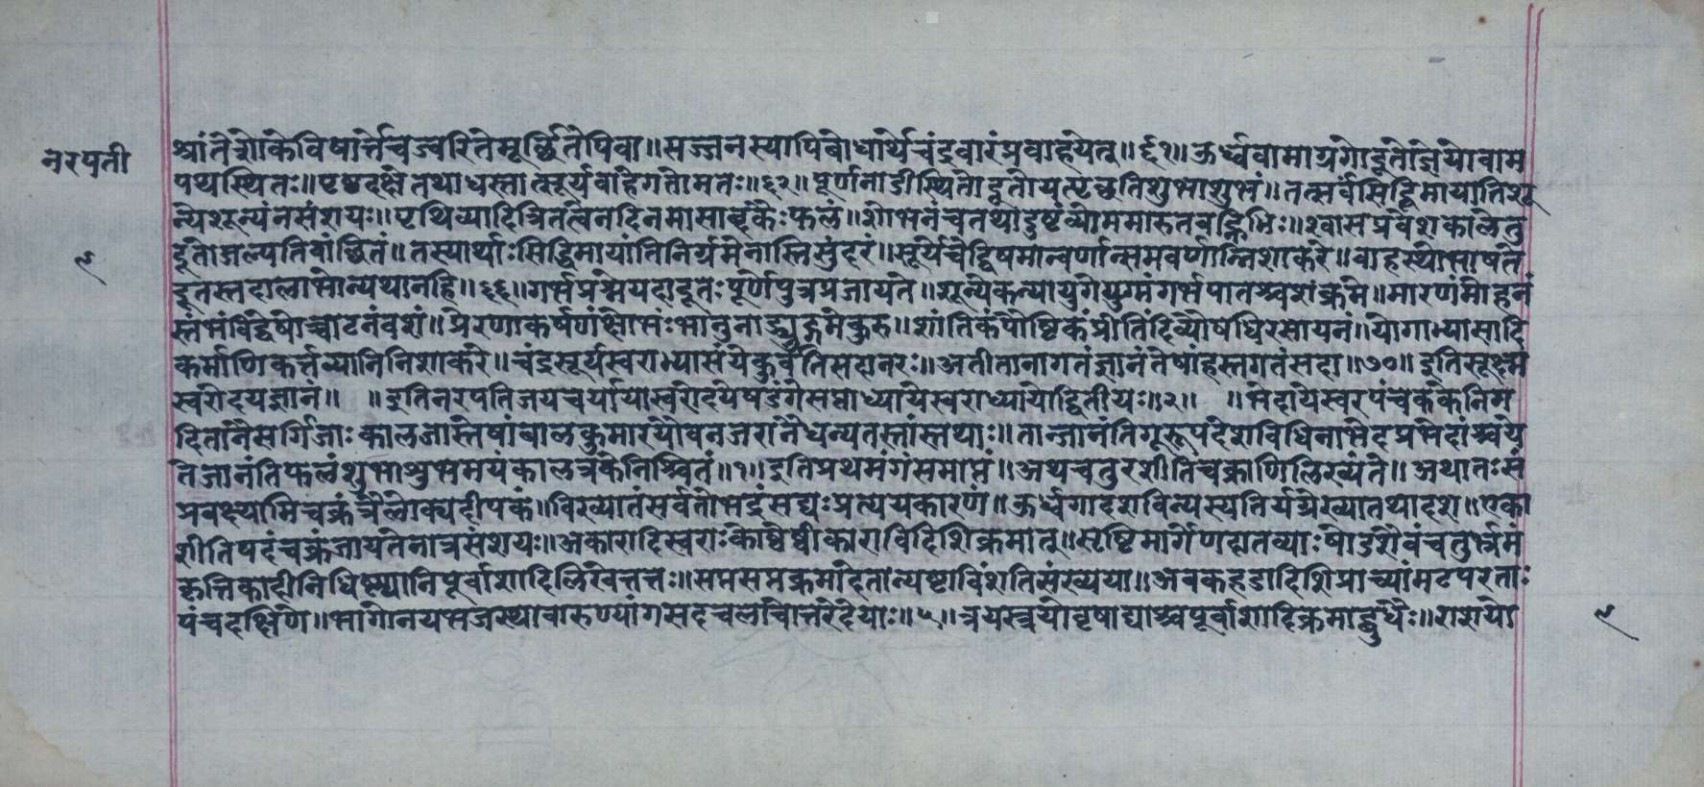 नरपती
श्रांतेशोकेविषार्त्तेचज्वरितेमूर्छितेपिवा॥सज्जनस्यापिबोधार्थेचंद्रचारंप्रवाहयेत्॥६१॥ऊर्ध्ववामाग्रगोदूतोज्ञेयोवाम
पथस्थितः॥पृष्ठदक्षेतथाधस्तात्सूर्यवाहेगतोमतः॥६२॥पूर्णनाडीस्थितोदूतोयत्पृच्छतिशुभाशुभं॥तत्सर्वंसिद्धिमायातिशू
न्येशून्यंनसंशयः॥पृथिव्यादित्रितत्वेनदिनमासाब्दकैःफलं॥शोभनंचतथादुष्टंव्योममारुतवह्निभिः॥श्वासप्रवेशकालेतु
दूतोजल्पतिवांछितं॥तस्यार्थाःसिद्धिमायांतिनिर्गमेनास्तिसुंदरं॥सूर्येचेद्विषमान्वर्णान्समवर्णान्निशाकरे॥वाहस्थोभाषते
दूतस्तदालाभोन्यथानहि॥६६॥गर्भप्रश्नेयदादूतःपूर्णेपुत्रप्रजायते॥शून्येकन्यायुगेयुग्मंगर्भपातश्चशंक्रमे॥मारणंमोहनं
स्तंभंविद्वेषोच्चाटनंवशं॥प्रेरणाकर्षणंक्षोभंःभानुनाड्युद्गमेकुरु॥शांतिकंपौष्टिकंप्रीतिंदिव्यौषधिरसायनं॥योगाभ्यासादि
कर्माणिकर्त्तव्यानिनिशाकरे॥चंद्रसूर्यस्वराभ्यासंयेकुर्वंतिसदानरः॥अतीतानागतंज्ञानंतेषांहस्तगतंसदा॥७०॥इतिसूक्ष्म
स्वरोदयज्ञानं॥ ॥इतिनरपतिजयचर्यायांस्वरोदयेषडंगेसप्ताध्यायेस्वराध्यायोद्वितीयः॥२॥ ॥भेदायेस्वरपंचकेकेनिग
दितानैसर्गिजाःकालजास्तेषांबालकुमारयौवनजरानैधन्यतस्तांस्तथाः॥तान्जानंतिगूरूपदेशविधिनाभेदप्रभेदांश्चये
तेजानंतिफलंशुभाशुभमयंकालत्रकेनिश्चितं॥१॥इतिप्रथमंगंसमाप्तं॥अथचतुरशीतिचक्राणिलिख्यंते॥अथातःसं
प्रवक्ष्यामिचक्रंत्रैलोक्यदीपकं॥विख्यातंसर्वतोभद्रंसद्यःप्रत्ययकारणं॥ऊर्ध्वगादशविन्यस्यतिर्यग्रेख्यातथादश॥एका
शीतिपदंचक्रंजायतेनात्रसंशयः॥अकारादिस्वराःकोष्ठेष्वीकाराविदिशिक्रमात्॥सृष्टिमार्गेणदातव्याःषोडशैवंचतुर्भ्रमं
कृत्तिकादीनिधिष्ण्यानिपूर्वाशादिलिखेत्ततः॥सप्तसप्तक्रमादेतान्यष्टाविंशतिसंख्यया॥अवकहडादिशिप्राच्यांमटपरताः
पंचदक्षिणे॥भागोनयभजस्थावारुण्यांगसदचलाचोत्तरेदेयाः॥५॥त्रयस्त्रयोवृषाद्याश्चपूर्वाशादिक्रमाद्बुधैः॥राशयो
९
९